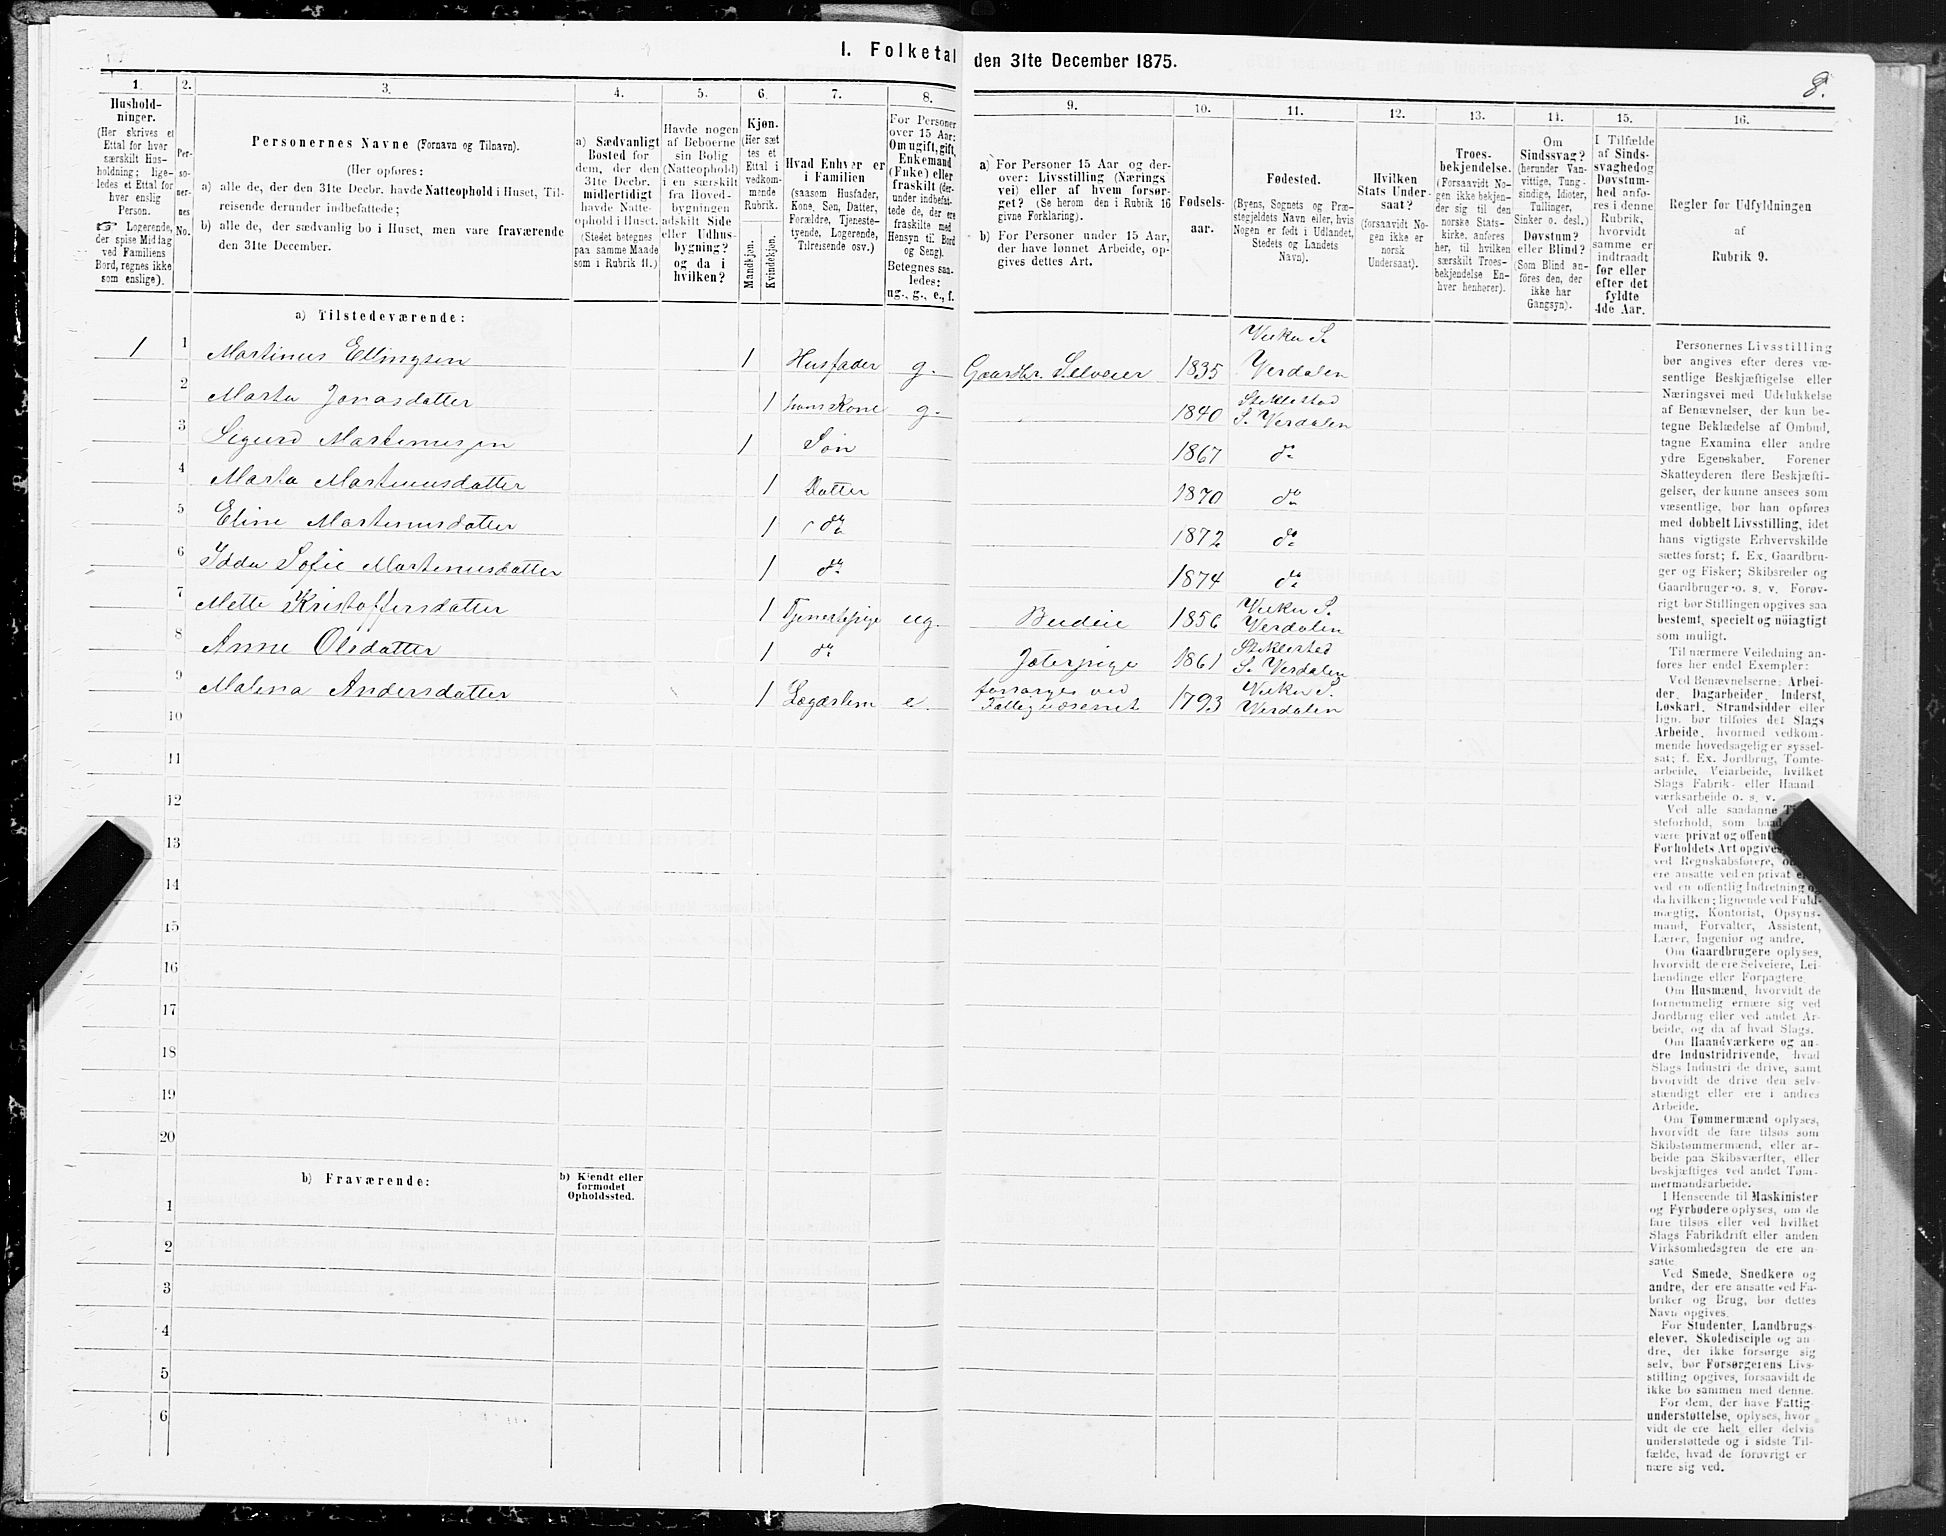 I. Folketal den 31te December 1875.
8.
1.
Hushold-
ninger.
(Her skrives et
Ettal for hver
særskilt Hus-
holdning; lige-
ledes et Ettal for
hver enslig
Person.
☞ Logerende,
der spise Middag
ved Familiens
Bord, regnes ikke
som enslige).
2.
Per-
so-
ner-
nes
No.
3.
Personernes Navne (Fornavn og Tilnavn).
(Her opføres:
a) alle de, der den 31te Decbr. havde Natteophold i Huset, Til-
reisende derunder indbefattede;
b) alle de, der sædvanlig bo i Huset, men vare fraværende
den 31te December.
4.
a) Sædvanligt
Bosted for
dem, der den
31te Decbr.
midlertidigt
havde Natte-
ophold i Huset.
(Stedet betegnes
paa samme Maade
som i Rubrik 11.)
5.
Havde nogen
af Beboerne
sin Bolig
(Natteophold)
i en særskilt
fra Hoved-
bygningen
adskilt Side
eller Udhus-
bygning?
og da i
hvilken?
6.
Kjøn.
(Her sæt
tes et
Ettal i
vedkom-
mende
Rubrik.
Mandkjøn.
Kvindekjøn.
7.
Hvad Enhver er
i Familien
(saasom Husfader,
Kone, Søn, Datter,
Forældre, Tjeneste-
tyende, Logerende,
Tilreisende osv.)
8.
For Personer
over 15 Aar:
Om ugift, gift,
Enkemand
(Enke) eller
fraskilt (der-
under indbefat-
tede de, der ere
fraskilte med
Hensyn til Bord
og Seng).
Betegnes saa-
ledes:
ug., g., e., f.
9.
a) For Personer 15 Aar og der-
over: Livsstilling (Nærings
vei) eller af hvem forsør-
get? (Se herom den i Rubrik 16
givne Forklaring).
b) For Personer under 15 Aar,
der have lønnet Arbeide, op-
gives dettes Art.
10.
Fødsels-
aar.
11.
Fødested.
(Byens, Sognets og Præ-
stegjeldets Navn eller, hvis
Nogen er født i Udlandet,
Stedets og Landets
Navn).
12.
Hvilken
Stats Under-
saat?
(forsaavidt No-
gen ikke er
norsk
Undersaat).
13.
Troes-
bekjendelse.
(Forsaavidt No-
gen ikke bekjen-
der sig til den
norske Stats-
kirke, anføres
her, til hvilken
særskilt Troes-
bekjendelse En-
hver henhører).
14.
Om
Sindssvag?
(herunder Van-
vittige, Tung-
sindige, Idioter,
Tullinger,
Sinker o. desl.)
Døvstum?
eller Blind?
(Som Blind an-
føres den, der
ikke har
Gangsyn).
15.
I Tilfælde
af Sinds-
svaghed og
Døvstum-
hed anfø-
res i denne
Rubrik,
hvorvidt
samme er
indtraadt
før eller
efter det
fyldte
4de Aar.
16.
Regler for Udfyldningen
af
Rubrik 9.
a) Tilstedeværende:
1 1 Martinus Ellingsen 1 Husfader g. Gaardbr. Selveier 1835 Vuku S. Verdalen
2 Marta Jonasdatter 1 hans Kone g. 1840 Stiklestad S. Verdalen
3 Sigurd Martinusen 1 Søn 1867 do
4 Marta Martinusdatter 1 Datter 1870 do
5 Eline Martinusdatter 1 do 1872 do
6 Idda Sofie Martinusdatter 1 do 1874 do
7 Mette Kristoffersdatter 1 Tjenestepige ug. Budeie 1856 Vuku S. Verdalen
8 Anne Olsdatter 1 do Jæterpige 1861 Stiklestad S. Verdalen
9 Malena Andersdatter 1 Lægdslem e. forsørges ved Fattigvæsenet 1793 Vuku S. Verdalen
10
11
12
13
14
15
16
17
18
19
20
b) Fraværende:
b) Kjendt eller
formodet
Opholdssted.
1
2
3
4
5
6
Personernes Livsstilling
bør angives efter deres væ-
sentlige Beskjæftigelse eller
Næringsvei med Udelukkelse
af Benævnelser, der kun be-
tegne Beklædelse af Ombud,
tagne Examina eller andre
ydre Egenskaber. Forener
Skatteyderen flere Beskjæfti-
gelser, der kunne ansees som
væsentlige, bør han opføres
med dobbelt Livsstilling, idet
hans vigtigste Erhvervskilde
sættes først; f. Ex. Gaardbru-
ger og Fisker; Skibsreder og
Gaardbruger o. s. v. Forøv-
rigt bør Stillingen opgives saa
bestemt, specielt og nöiagtigt
som muligt.
Til nærmere Veiledning an-
føres her endel Exempler:
Ved Benævnelserne: Arbei-
der, Dagarbeider, Inderst,
Løskarl, Strandsidder eller
lign. bør tilføies det Slags
Arbeide, hvormed vedkom-
mende hovedsagelig er syssel-
sat; f. Ex. Jordbrug, Tomte-
arbeide, Veiarbeide, hvilket
Slags Fabrik- eller Haand
værksarbeide o. s. v.
Ved alle saadanne
steforhold, som
være privat og
Forholdets Art opgives,
ved Regnskabsførere,
ere ansatte ved en privat
ved en offentlig Indretning og
da hvilken; lignende ved Fuld-
mægtig, Kontorist, Opsyns-
mand, Forvalter, Assistent,
Lærer, Ingeniør og andre.
Om Gaardbrugere oplyses,
hvorvidt de ere Selveiere, Lei-
lændinge eller Forpagtere
Om Husmænd, hvorvidt de
fornemmelig ernære sig ved
Jordbrug eller ved andet Ar-
beide, og da af hvad Slags.
Om Haandværkere og an-
dre Industridrivende, hvad
Slags Industri de drive, samt
hvorvidt de drive den selv-
stændigt eller ere i andres
Arbeide.
Om Tømmermænd oplyses,
hvorvidt de fare tilsøs som
Skibstømmermænd, eller ar-
beide paa Skibsværfter, eller
beskjæftiges ved andet Tøm-
mermandsarbeide.
I Henseende til Maskinister
og Fyrbødere oplyses, om de
fare tilsøs eller ved hvilket
Slags Fabrikdrift eller anden
Virksomhedsgren de ere an-
satte
Ved Smede, Snedkere og
andre, der ere ansatte ved Fa-
briker og Brug, bør dettes
Navn opgives.
For Studenter, Landbrugs-
elever, Skoledisciple og an-
dre, der ikke forsørge sig
selv, bør Forsørgerens Livs-
stilling opgives, forsaavidt de
ikke bo sammen med denne.
For dem, der have Fattig
understøttelse, oplyses, hvor
vidt de ere helt eller delvis
understøttede og i sidste Til-
fælde, hvad de forøvrigt er
nære sig ved.